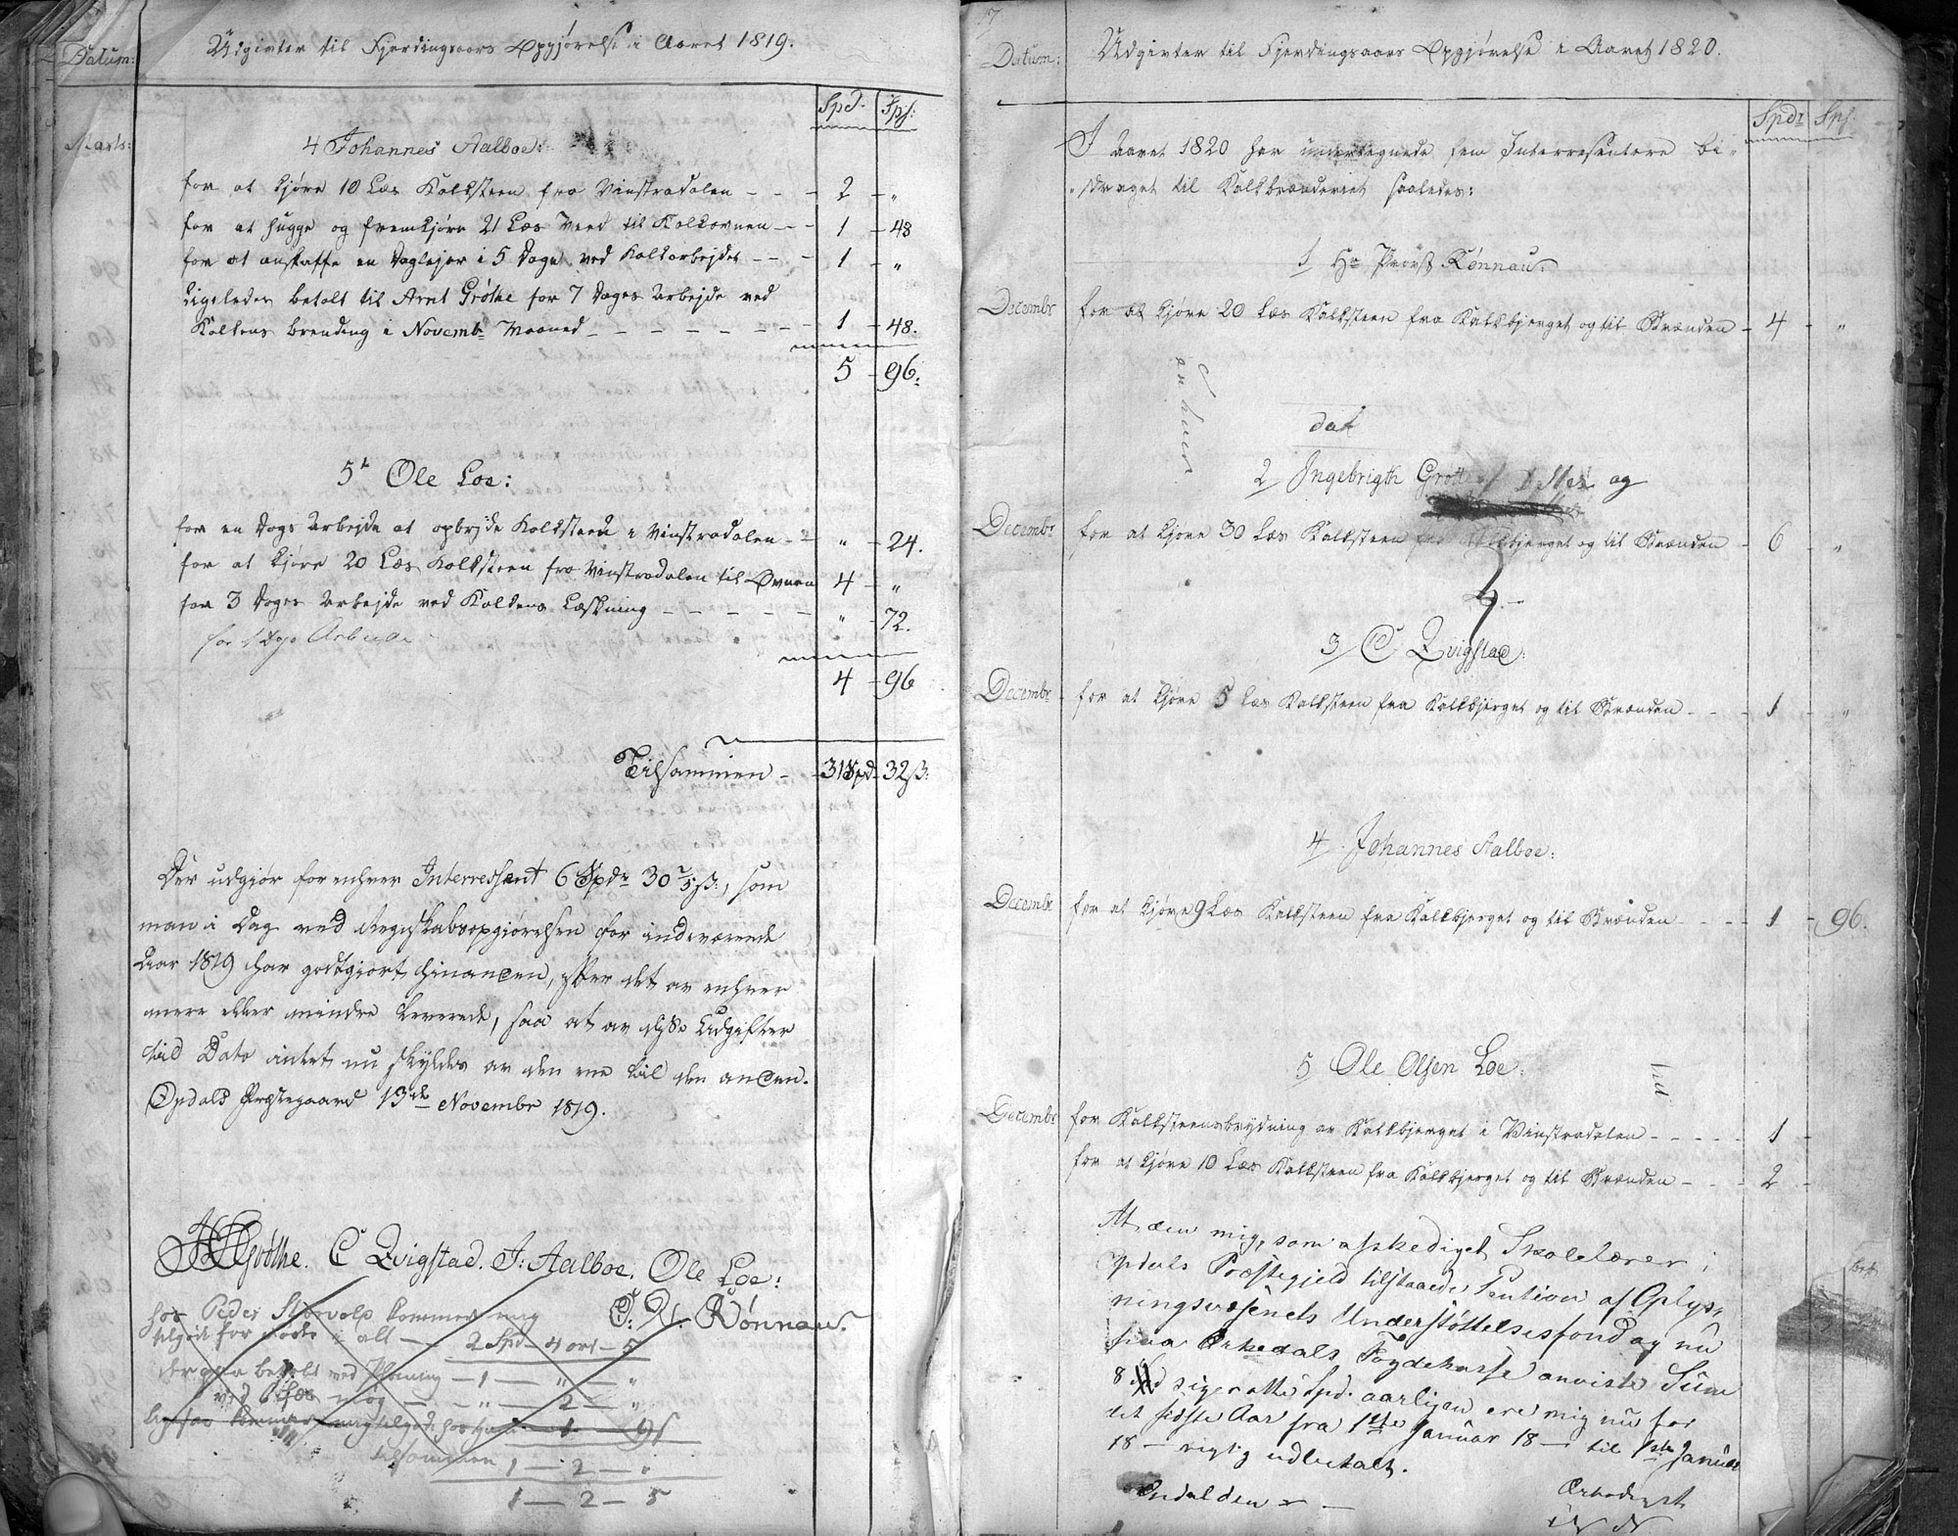 Datum: Udgivter til Fjerdingsaars Opgjørelse i Aaret 1819.
Spd. Spſ:
Marts: 4 Johannes Aalboe:
for at kjøre 10 Læs Kalksteen fra Vinstradalen - - - 2 - "
for at hugge og fremkjøre 21 Læs Veed til Kalkovnen - - 1 - 48
for at anskaffe en Daglejer i 5 Dage ved Kalkarbejdet - - - 1 - "
Ligeledes betalt til Arnt Grøthe for 7 Dages Arbejde ved
Kalkens brending i Novembr Maaned - - - - - - 1 - 48.
5 - 96.
5 Ole Loe:
for en Dags Arbejde at opbryde Kalksteen i Vinstradalen - " - 24.
for at kjøre 20 Læs Kalksteen fra Vinstradalen til Ovnen 4 - "
for 3 Dages Arbejde ved Kalkens Læskning - - - - - " - 72.
for 1 Dgs Arbeide
4 - 96
Tilsammen - 31 Spd - 32 ß.
Der udgiør for enhver Interressent 6 Spdr 30 2/5 ß., som
man i Dag ved Regnskabsopgiørelsen for indeværende
Aar 1819 har godtgiort hinanden, efter det av enhver
mere eller mindre leverede, saa at av disse Udgifter
til Dato intet nu skyldes av den ene til den anden.
Opdals Præstegaard 13de Novembr 1819.
Grøthe. C Qvigstad. J: Aalboe. Ole Loe:
C. H. Rønnau.
hos Peder Storvold kommer mig
tilgode for i alt - 2 Spd - 4 ort - 5
derpaa betalt ved - 1 - " - "
ved - " - 2 - "
kommer mig tilgode hos ham
tilsammen 1 - 2 - "
1 - 2 - 5
17
Datum: Udgivter til Fjerdingsaars Opgjørelse i Aaret 1820.
Spdr Spſ.
I Aaret 1820 har undertegnede fem Interresentere bi-
draget til Kalkbrænderiet saaledes:
1/ Hr Provst Rønnau.
Decembr for at kjøre 20 Læs Kalksteen fra Kalkbjerget og til Stranden - 4 - "
dat
2/ Ingebrigth Grøtte og
Decembr for at kjøre 30 Læs Kalksteen fra Kalkbjerget og til Stranden - 6 - "
3/ C Qvigstad:
Decembr for at kjøre 5 Læs Kalksteen fra Kalkbjerget og til Stranden - - - 1 - "
4/ Johannes Aalboe:
Decembr for at kjøre 9 Læs Kalksteen fra Kalkbjerget og til Stranden - - - 1 - 96.
5 Ole Olsen Loe:
Decembr for Kalksteensbrydning av Kalkbjerget i Vinstradalen - - - - - 1 -
for at kjøre 10 Læs Kalksteen fra Kalkbjerget og til Stranden - - - 2 -
At den mig, som afskediget Skolelærer i
Opdals Præstegjeld tilstaaede Pention af Oplys-
ningsvæsenets Understøttelsesfond og nu
fraa Orkedals Fogdekasse anviste Sum
8 Spd siger otte Spd. aarligen ere mig nu for
det sidste Aar fra 1ste Januar 18 - til 1ste Januar
18 - rigtig udbetalt.
Opdal den -
Ærbødigst
N N